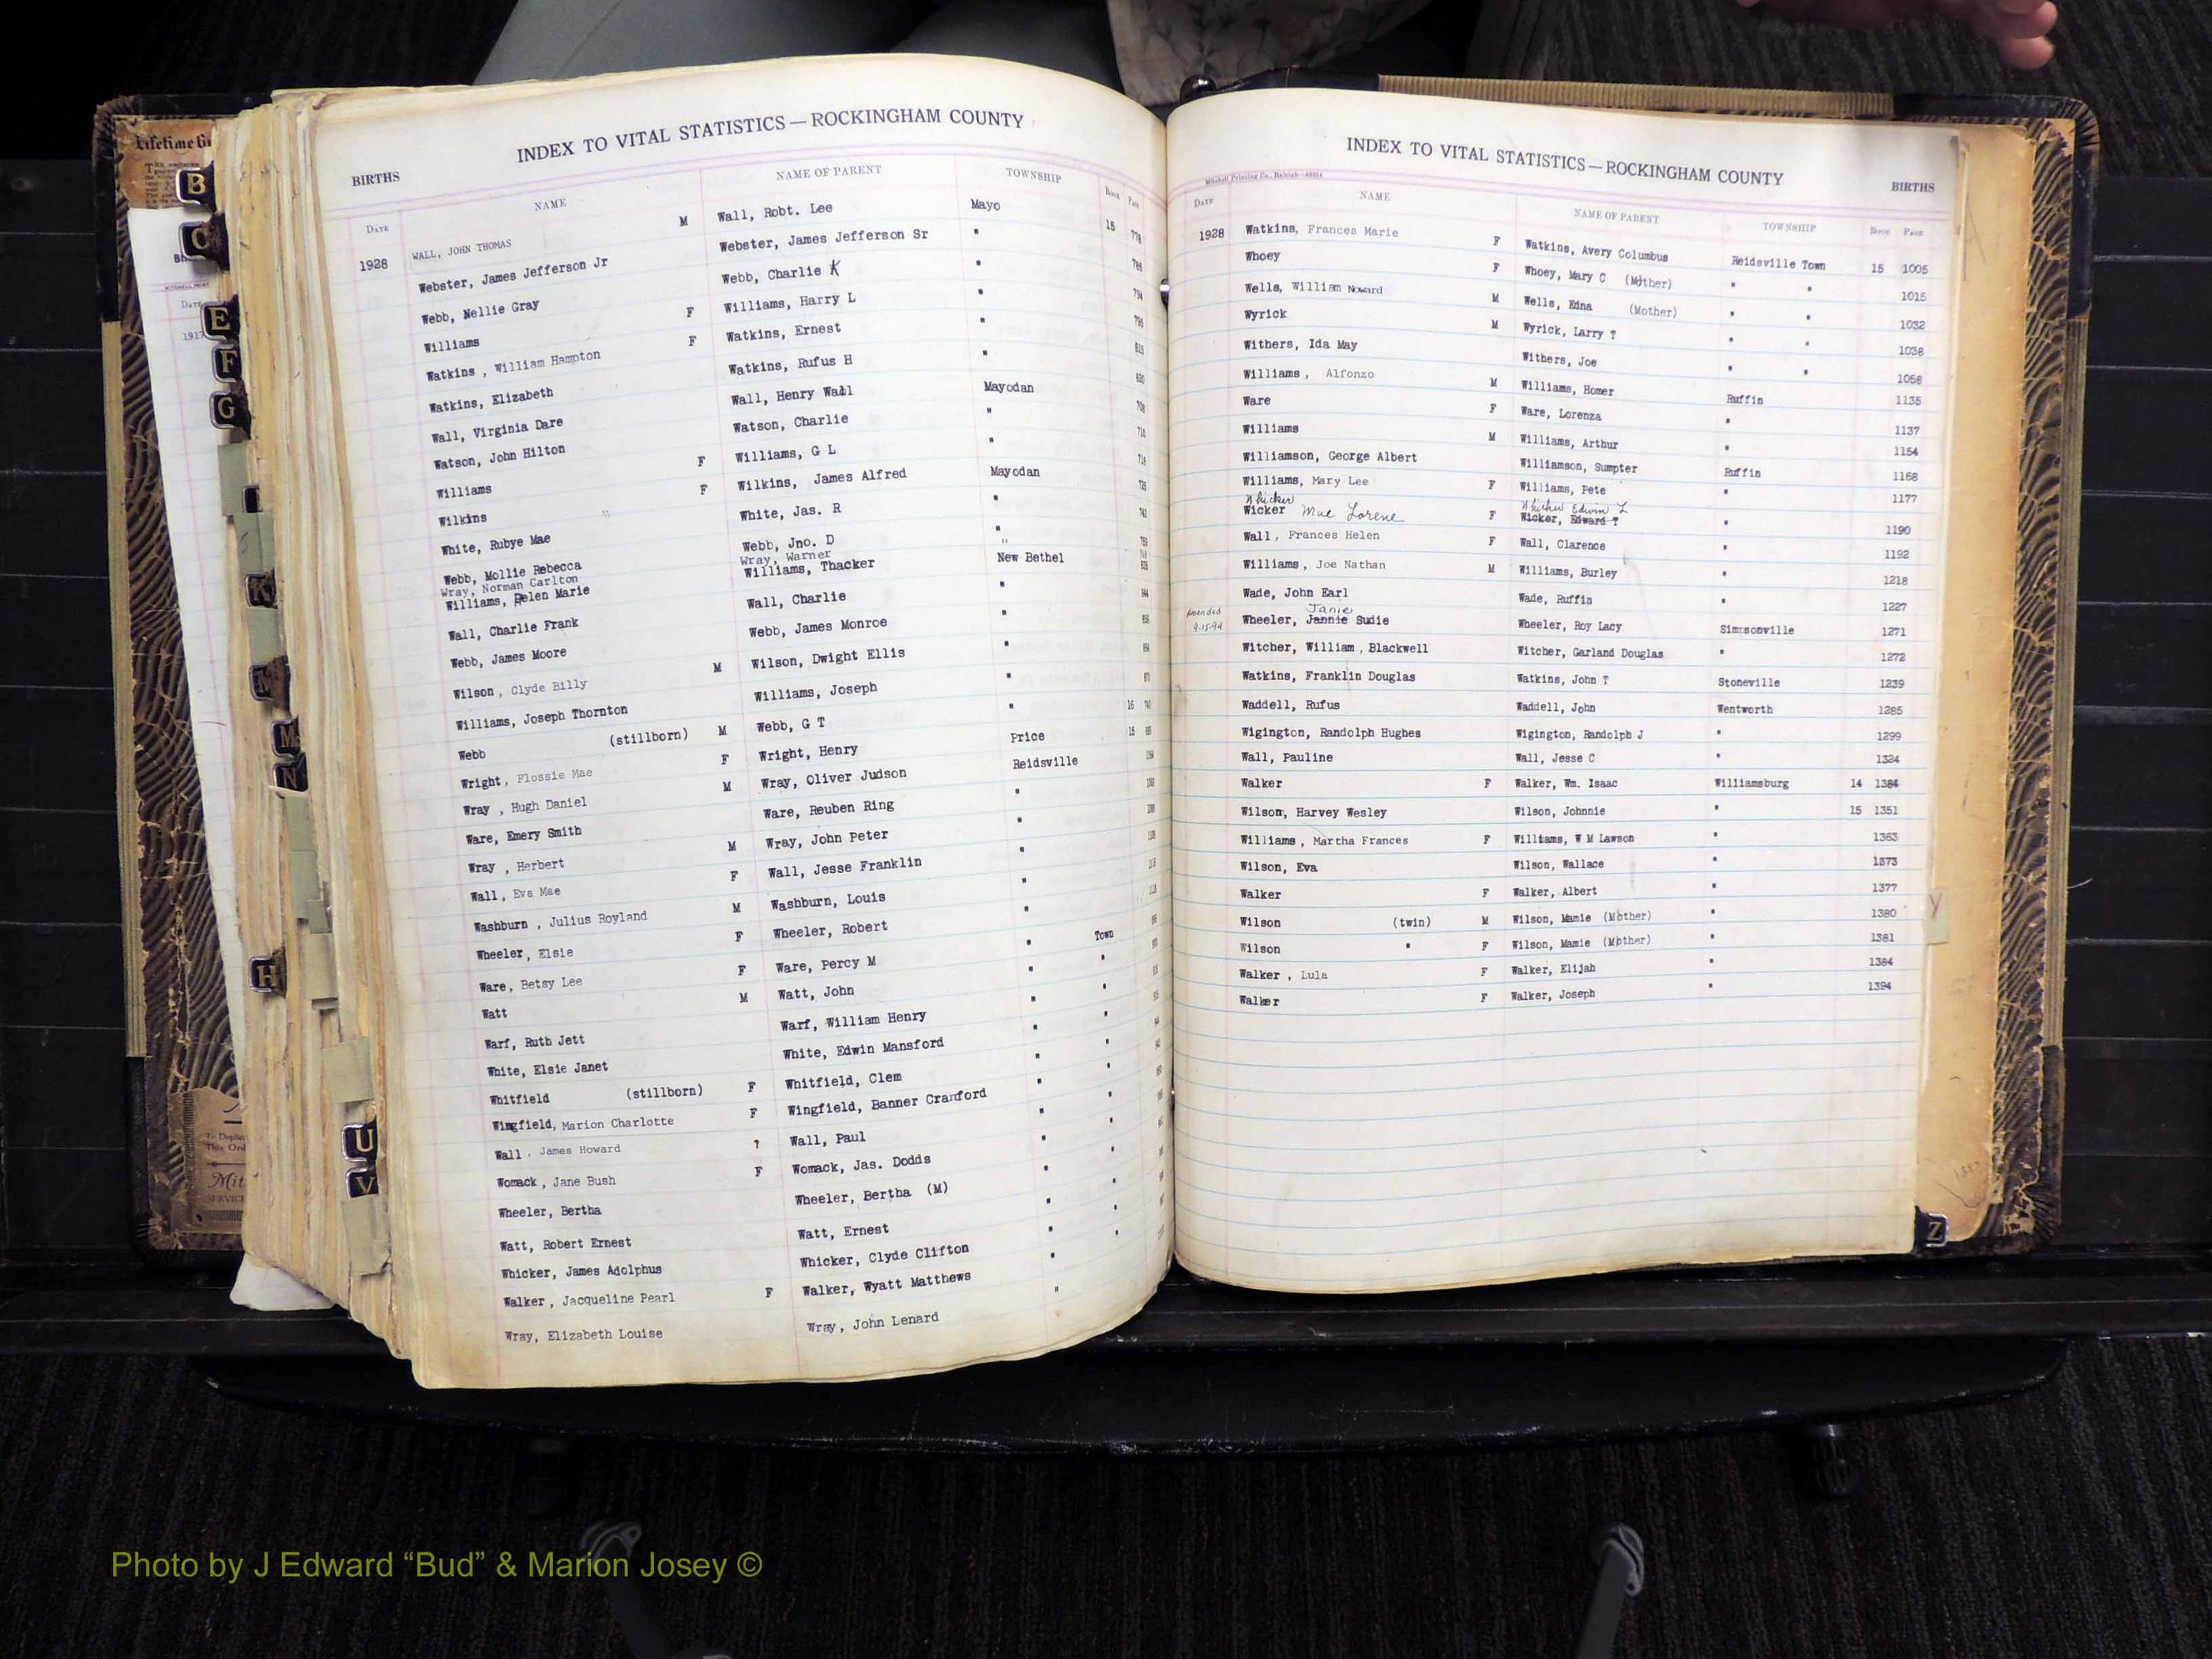 Lifetime
B
C
E
F
G
K
M
M
N
H
U
V
Z
DATE
1917
INDEX TO VITAL STATISTICS — ROCKINGHAM COUNTY
BIRTHS
DATE NAME NAME OF PARENT TOWNSHIP BOOK PAGE
1928 WALL, JOHN THOMAS M Wall, Robt. Lee Mayo 15 778
Webster, James Jefferson Jr Webster, James Jefferson Sr "
Webb, Nellie Gray Webb, Charlie K "
Williams F Williams, Harry L "
Watkins, William Hampton F Watkins, Ernest "
Watkins, Elizabeth Watkins, Rufus H "
Wall, Virginia Dare Wall, Henry Wall Mayodan
Watson, John Hilton Watson, Charlie "
Williams F Williams, G L "
Wilkins F Wilkins, James Alfred Mayodan
White, Rubye Mae White, Jas. R "
Webb, Mollie Rebecca Webb, Jno. D "
Wray, Norman Carlton Wray, Warner "
Williams, Helen Marie Williams, Thacker New Bethel
Wall, Charlie Frank Wall, Charlie "
Webb, James Moore Webb, James Monroe "
Wilson, Clyde Billy M Wilson, Dwight Ellis "
Williams, Joseph Thornton Williams, Joseph "
Webb (stillborn) M Webb, G T " 16
Wright, Flossie Mae F Wright, Henry Price 15
Wray, Hugh Daniel M Wray, Oliver Judson Reidsville
Ware, Emery Smith Ware, Reuben Ring "
Wray, Herbert M Wray, John Peter "
Wall, Eva Mae F Wall, Jesse Franklin "
Washburn, Julius Royland M Washburn, Louis "
Wheeler, Elsie F Wheeler, Robert "
Ware, Betsy Lee F Ware, Percy M " Town
Watt M Watt, John " "
Warf, Ruth Jett Warf, William Henry " "
White, Elsie Janet White, Edwin Mansford " "
Whitfield (stillborn) F Whitfield, Clem " "
Wingfield, Marion Charlotte F Wingfield, Banner Cranford " "
Wall, James Howard ? Wall, Paul " "
Womack, Jane Bush F Womack, Jas. Dodds " "
Wheeler, Bertha Wheeler, Bertha (M) " "
Watt, Robert Ernest Watt, Ernest " "
Whicker, James Adolphus Whicker, Clyde Clifton " "
Walker, Jacqueline Pearl F Walker, Wyatt Matthews "
Wray, Elizabeth Louise Wray, John Lenard "
INDEX TO VITAL STATISTICS — ROCKINGHAM COUNTY
BIRTHS
Mitchell Printing Co., Raleigh
DATE NAME NAME OF PARENT TOWNSHIP BOOK PAGE
1928 Watkins, Frances Marie F Watkins, Avery Columbus Reidsville Town 15 1005
Whoey F Whoey, Mary C (Mother) " " 1015
Wells, William Noward M Wells, Edna (Mother) " " 1032
Wyrick M Wyrick, Larry T " " 1038
Withers, Ida May Withers, Joe " " 1058
Williams, Alfonzo M Williams, Homer Ruffin 1135
Ware F Ware, Lorenza " 1137
Williams M Williams, Arthur " 1154
Williamson, George Albert Williamson, Sumpter Ruffin 1168
Williams, Mary Lee F Williams, Pete " 1177
Whicker Whicker Edwin L
Wicker Mae Lorene F Wicker, Edward T " 1190
Wall, Frances Helen F Wall, Clarence " 1192
Williams, Joe Nathan M Williams, Burley " 1218
Wade, John Earl Wade, Ruffin " 1227
Amended Janie
9-15-94 Wheeler, Jannie Sudie Wheeler, Roy Lacy Simpsonville 1271
Witcher, William, Blackwell Witcher, Garland Douglas " 1272
Watkins, Franklin Douglas Watkins, John T Stoneville 1239
Waddell, Rufus Waddell, John Wentworth 1285
Wigington, Randolph Hughes Wigington, Randolph J " 1299
Wall, Pauline Wall, Jesse C " 1324
Walker F Walker, Wm. Isaac Williamsburg 14 1384
Wilson, Harvey Wesley Wilson, Johnnie " 15 1351
Williams, Martha Frances F Williams, W M Lawson " 1363
Wilson, Eva Wilson, Wallace " 1373
Walker F Walker, Albert " 1377
Wilson (twin) M Wilson, Mamie (Mother) " 1380
Wilson " F Wilson, Mamie (Mother) " 1381
Walker, Lula F Walker, Elijah " 1384
Walker F Walker, Joseph " 1394
Photo by J Edward “Bud” & Marion Josey ©